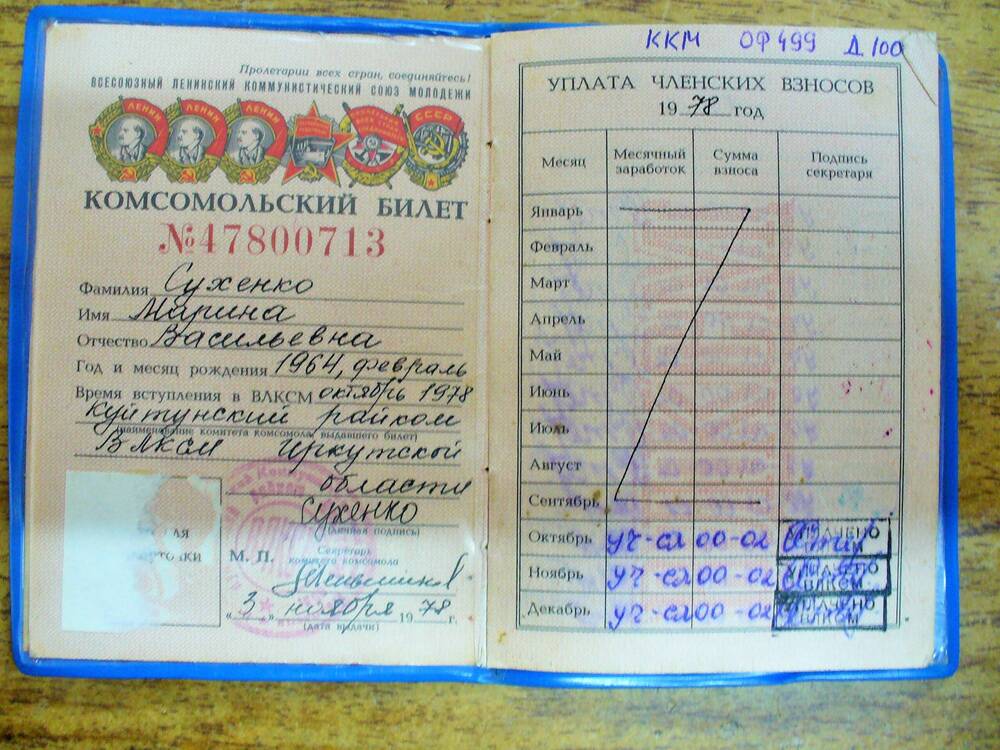 Пролетарии всех стран, соединяйтесь!
ВСЕСОЮЗНЫЙ ЛЕНИНСКИЙ КОММУНИСТИЧЕСКИЙ СОЮЗ МОЛОДЕЖИ
ЛЕНИН ЛЕНИН ЛЕНИН СССР
КОМСОМОЛЬСКИЙ БИЛЕТ
№47800713
Фамилия Сухенко
Имя Марина
Отчество Васильевна
Год и месяц рождения 1964, февраль
Время вступления в ВЛКСМ октябрь 1978
Куйтунский райком
(наименование комитета комсомола, выдавшего билет)
ВЛКСМ Иркутской
области
Сухенко
(личная подпись)
М. П.
Секретарь
комитета комсомола
„3" ноября 1978 г.
(дата выдачи)
ККМ ОФ499 Д100
УПЛАТА ЧЛЕНСКИХ ВЗНОСОВ
1978 год
Месяц Месячный заработок Сумма взноса Подпись секретаря
Январь
Февраль
Март
Апрель
Май
Июнь
Июль
Август
Сентябрь
Октябрь уч-ся 00-02
Ноябрь уч-ся 00-02 УПЛАЧЕНО ВЛКСМ
Декабрь уч-ся 00-02 УПЛАЧЕНО ВЛКСМ